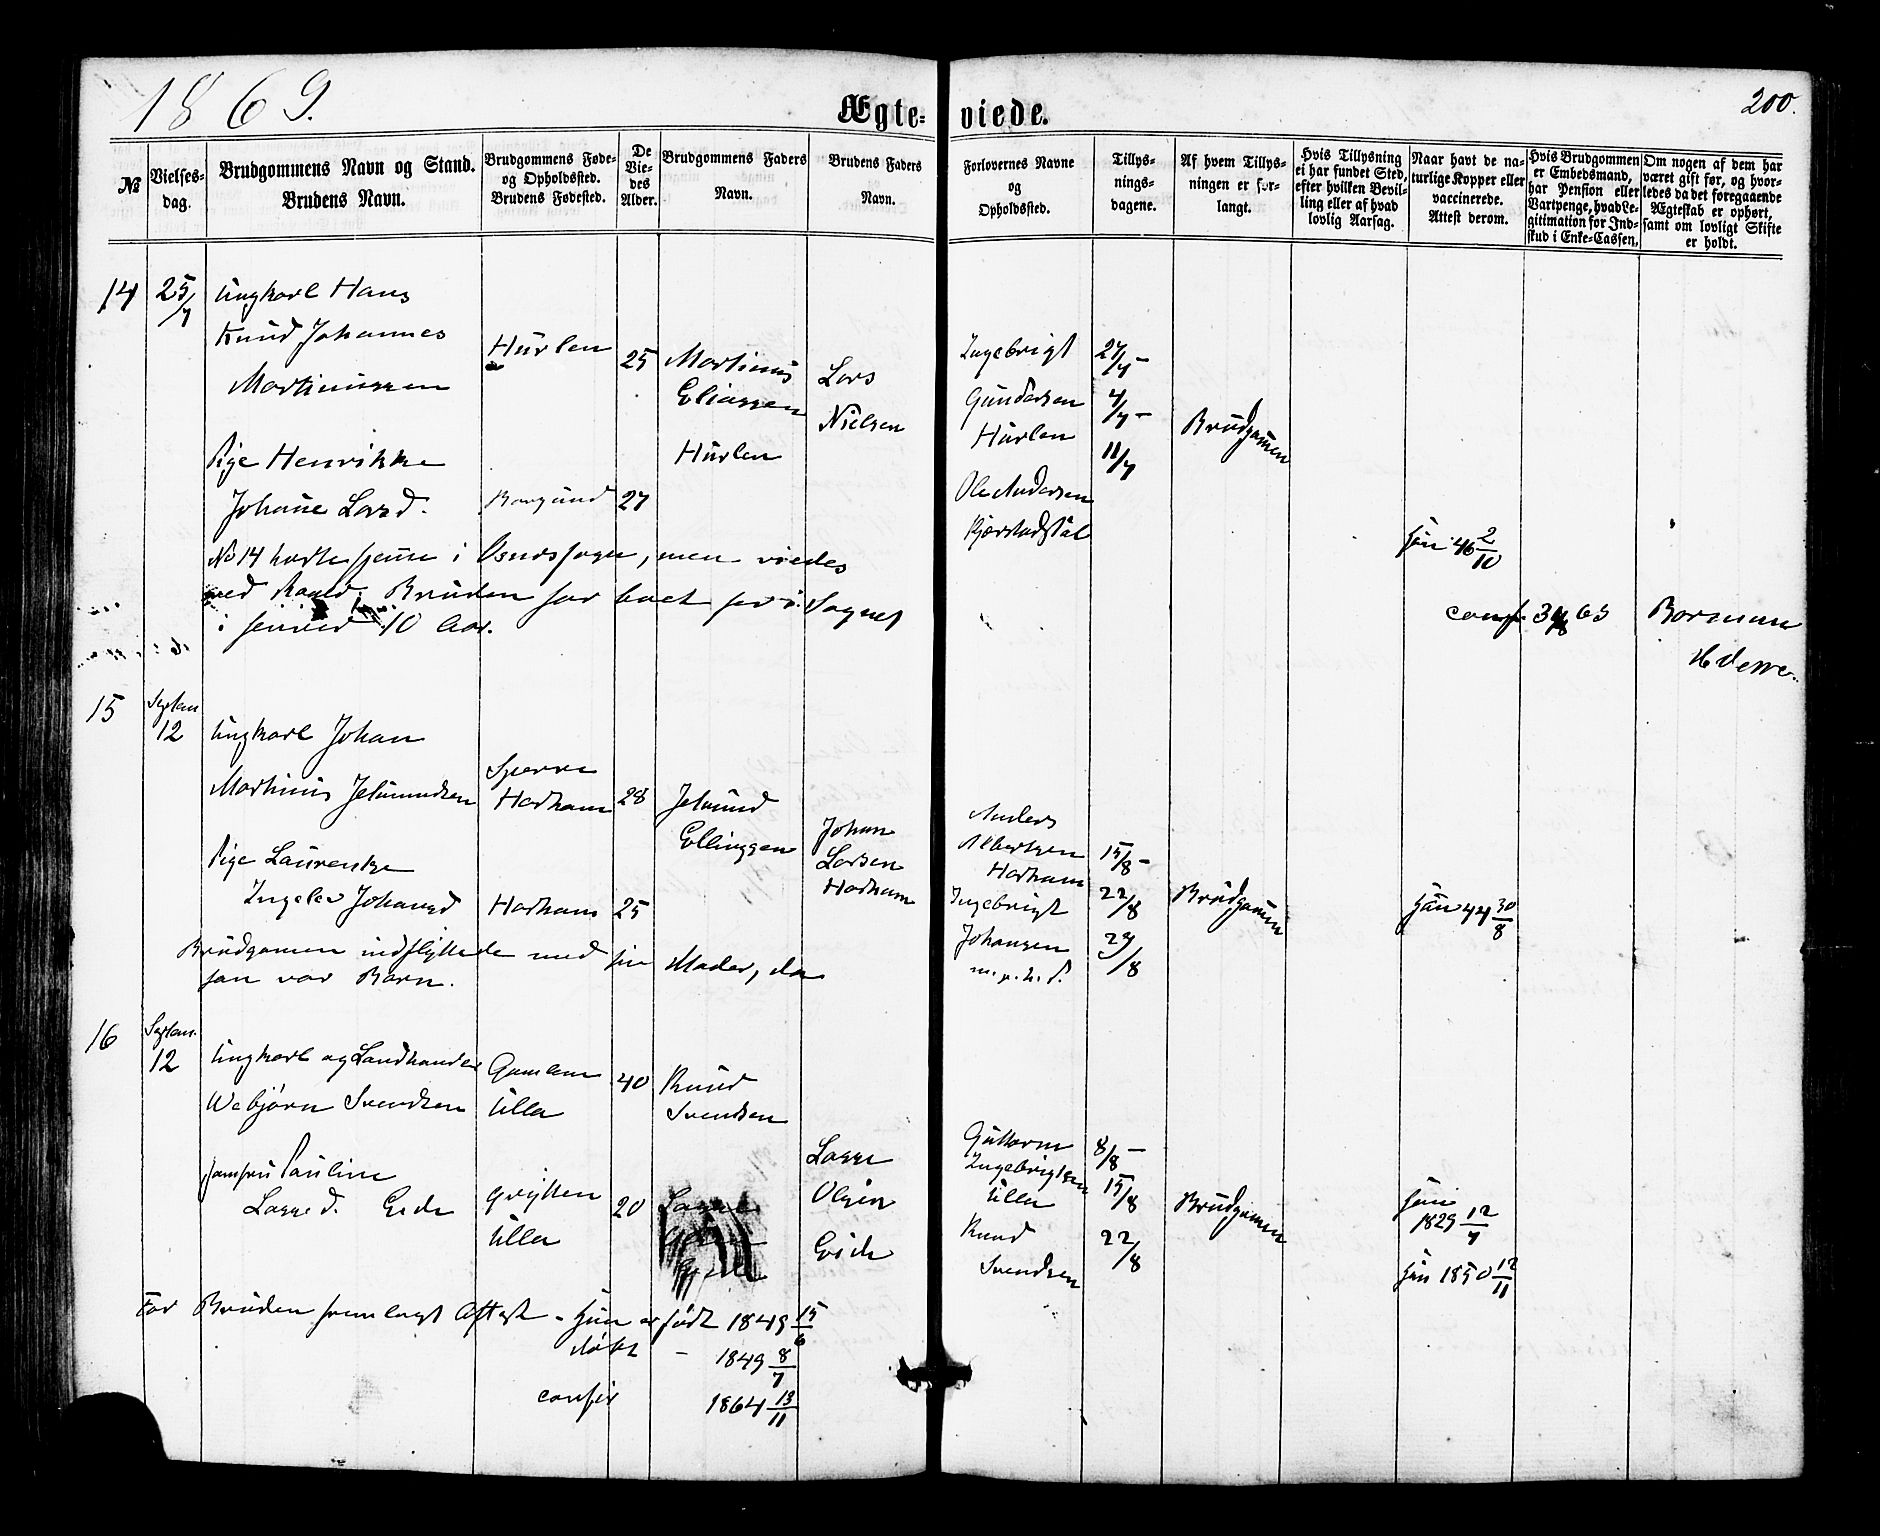 1869.
Ægte-
viede.
200.
№
Vielses-
dag.
Brudgommens Navn og Stand.
Brudens Navn.
Brudgommens Føde-
og Opholdssted.
Brudens Fødested.
De
Vie-
des
Alder.
Brudgommens Faders
Navn.
Brudens Faders
Navn.
Forlovernes Navne
og
Opholdssted.
Tillys-
nings-
dagene.
Af hvem Tillys-
ningen er for-
langt.
Hvis Tillysning
ei har fundet Sted,
efter hvilken Bevil-
ling eller af hvad
lovlig Aarsag.
Naar havt de na-
turlige Kopper eller
vaccinerede.
Attest derom.
Hvis Brudgommen
er Embedsmand,
har Pension eller
Vartpenge, hvad Le-
gitimation for Ind-
skud i Enke-Cassen,
Om nogen af dem har
været gift før, og hvor-
ledes da det foregaaende
Ægteskab er ophørt,
samt om lovligt Skifte
er holdt.
14
25/7
Ungkarl Hans
Knud Johannes
Martinussen
Pige Henrikke
Johane Larsd.
Hurlen
Borgund
25
27
Martinus
Eliassen
Hurlen
Lars
Nielsen
Ingebrigt
Gundersen
Hurlen
Ole Andersen
Kjerstadstøl
27/7 -
4/7 -
11/7
Brudgomen
Hun 46 2/10
No 14 hørte hjeme i sogn, men viedes
ved Bruden har boet her i Sognet
i henved 10 Aar.
conf. 63
15
Septem
12
Ungkarl Johan
Martinus Jetmundsen
Pige Laurentse
Ingelev Johansd
Sperre
Harham
Harham
28
25
Jetmund
Ellingsen
Johan
Larsen
Harham
Anders
Albertsen
Harham
Ingebrigt
Johansen
m. p. h. P.
15/8 -
22/8
29/8
Brudgomen
Hun 44 30/8
Brudgomen indflyttede med sin Moder, da
han var Barn.
16
Septem.
12
Ungkarl og Landhandler
Webjørn Svendsen
Jomfru Pauline
Lasse d. Eide
Gamlem
Ulla
Grytten
Ulla
40
20
Knud
Svendsen
Lasse
Olsen
Eide
Guttorm
Ingebrigtsen
Ulla
Knud
Svendsen
8/8 -
15/8
22/8
Brudgomen
Han
1829 12/7
Hun 1850 12/11
For Bruden fremlagt Attest - Hun er født 1849 15/6
døbt - 1849 8/7
confir 1864 13/11